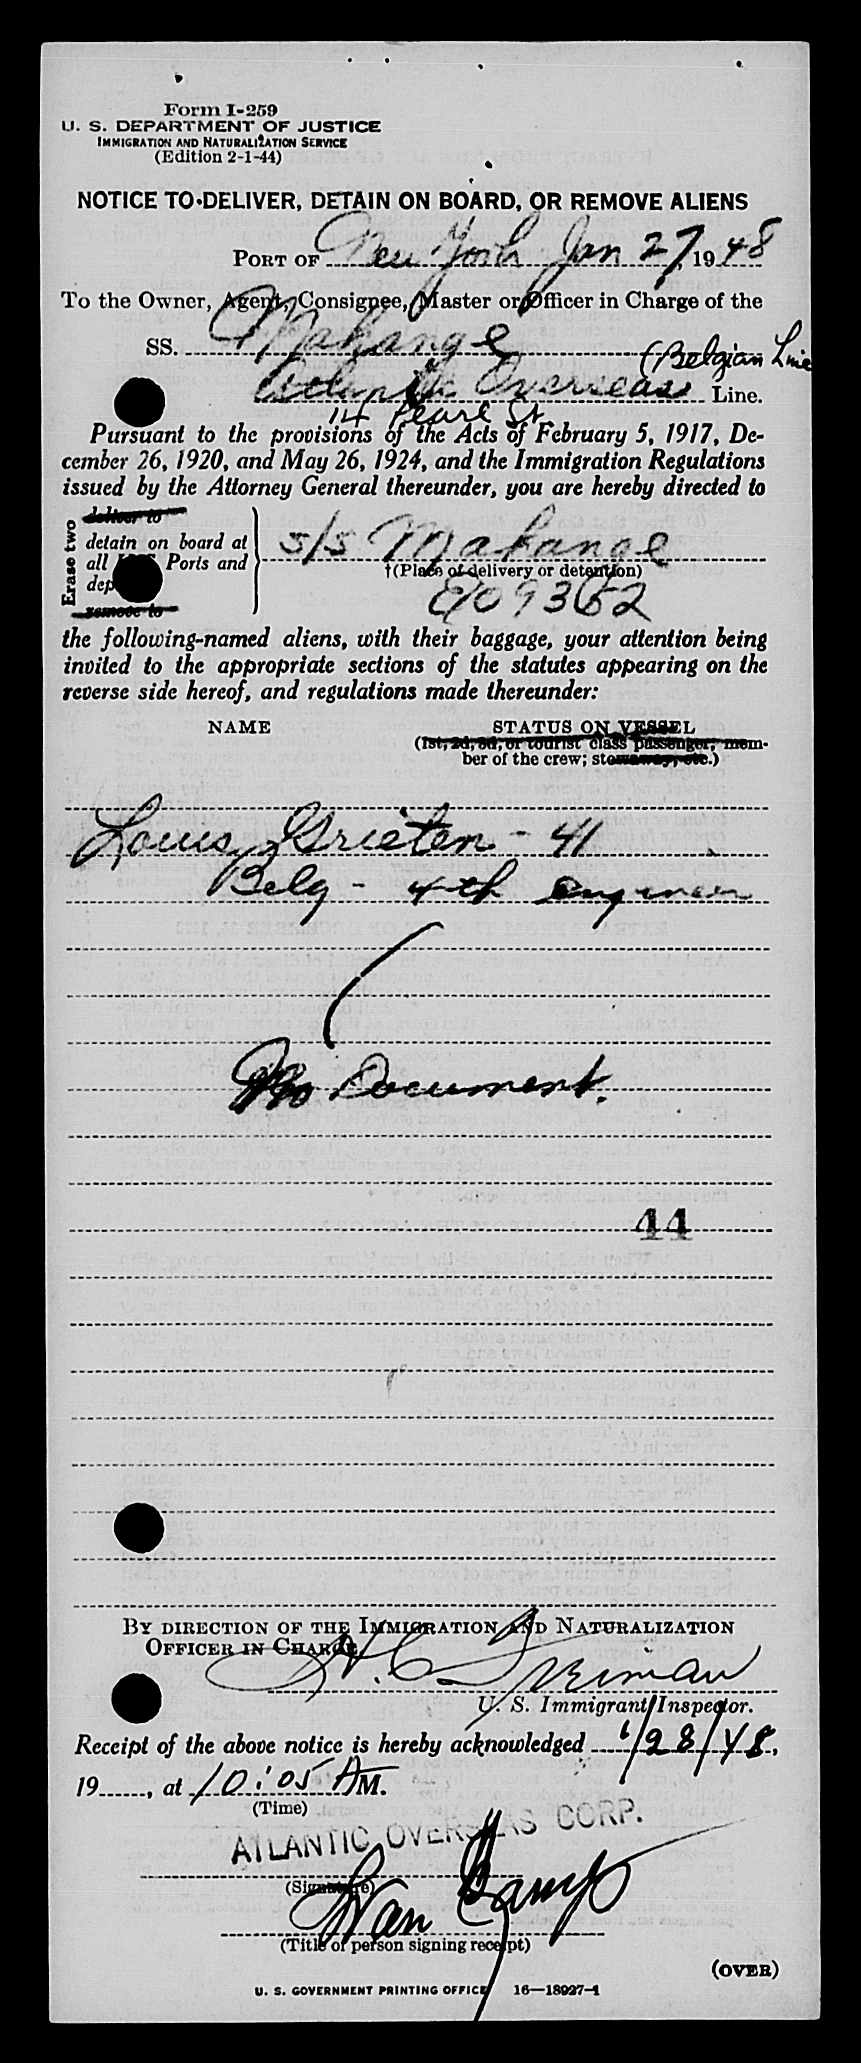 Form I-259
U. S. DEPARTMENT OF JUSTICE
IMMIGRATION AND NATURALIZATION SERVICE
(Edition 2-1-44)
NOTICE TO DELIVER, DETAIN ON BOARD, OR REMOVE ALIENS
PORT OF New York Jan 27, 1948
To the Owner, Agent, Consignee, Master or Officer in Charge of the
SS. Mahange
(Belgian Line
Atlantic Overseas Line.
14 Pearl St
Pursuant to the provisions of the Acts of February 5, 1917, De-
cember 26, 1920, and May 26, 1924, and the Immigration Regulations
issued by the Attorney General thereunder, you are hereby directed to
Erase two
deliver to
detain on board at
all Ports and
dep
remove to
s/s Mahange
†(Place of delivery or detention)
the following-named aliens, with their baggage, your attention being
invited to the appropriate sections of the statutes appearing on the
reverse side hereof, and regulations made thereunder:
NAME STATUS ON VESSEL
(1st, 2d, 3d, or tourist class passenger, mem-
ber of the crew; stowaway, etc.)
Louis Grieten - 41
Belg - 4th Engineer
No Document.
44
BY DIRECTION OF THE IMMIGRATION AND NATURALIZATION
OFFICER IN CHARGE
U. S. Immigrant Inspector.
Receipt of the above notice is hereby acknowledged 1/28/48,
19......, at 10:05 AM.
(Time)
ATLANTIC OVERSEAS CORP.
(Signature)
(Title of person signing receipt)
(OVER)
U. S. GOVERNMENT PRINTING OFFICE 16—18927-1